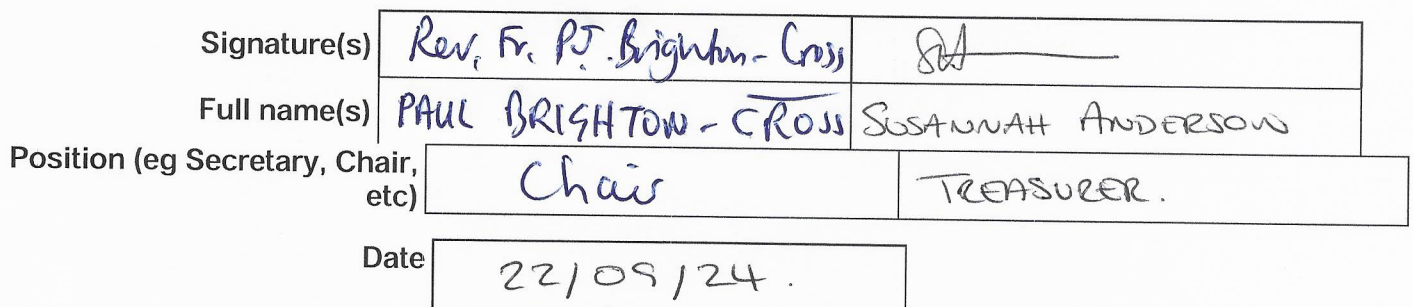 Signature(s) Rev. Fr. PJ. Brighton-Cross
Full name(s) PAUL BRIGHTON-CROSS SUSANNAH ANDERSON
Position (eg Secretary, Chair, etc) Chair TREASURER.
Date 22/09/24.